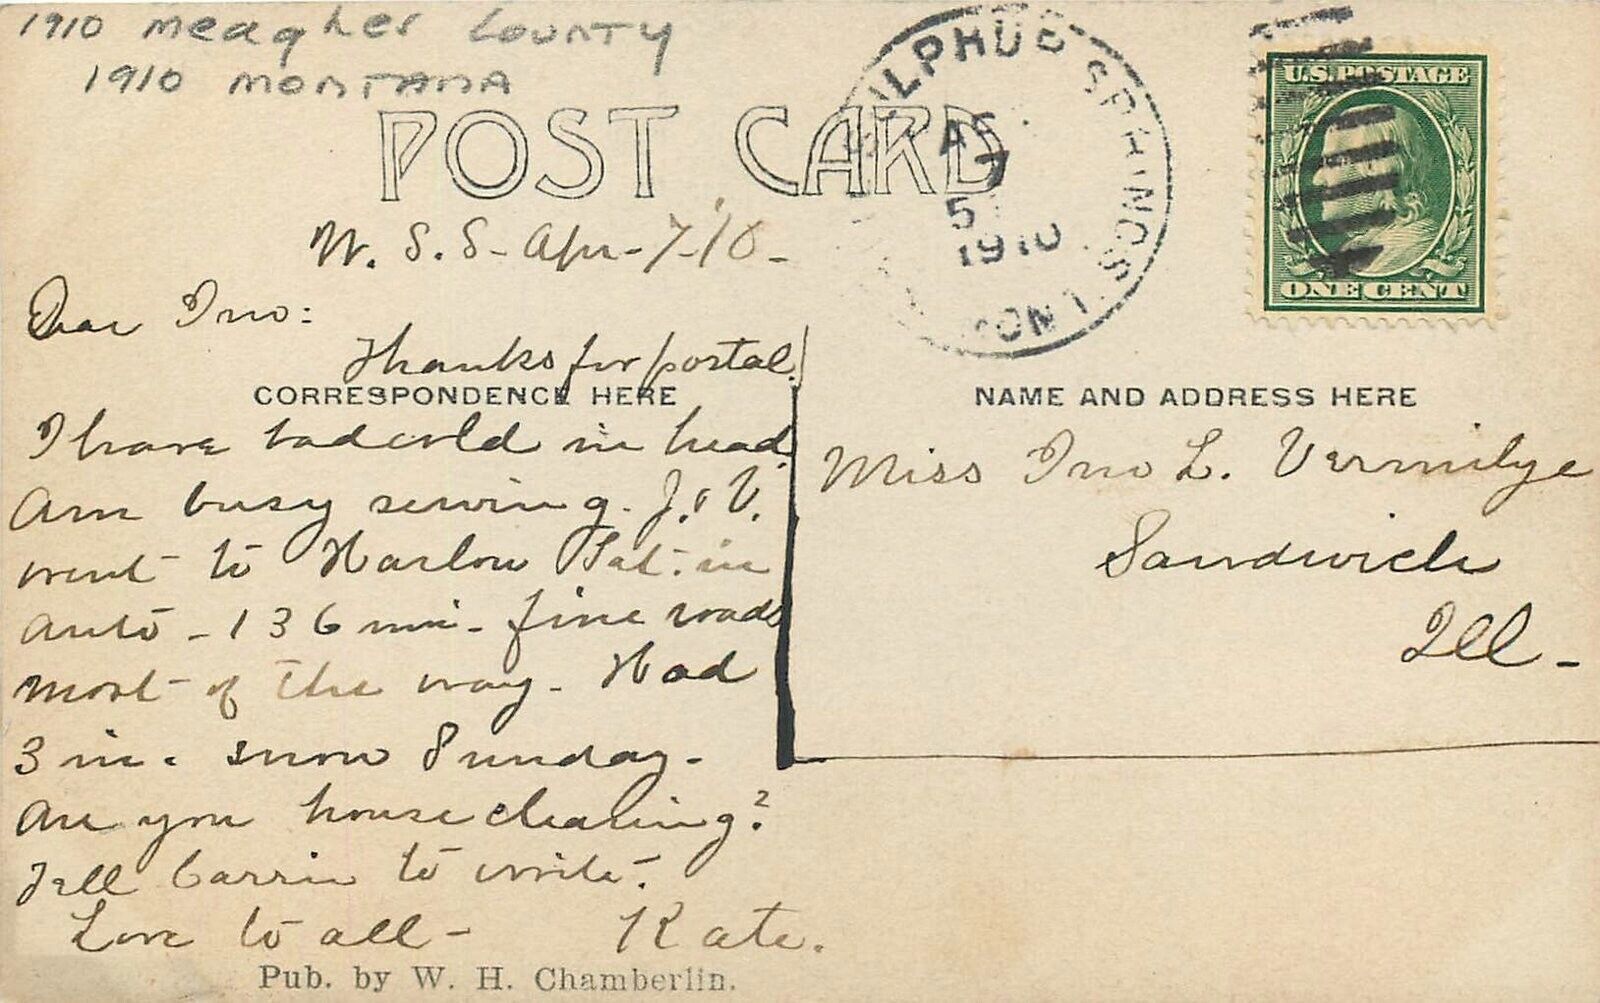 1910 Meagher County
1910 Montana
POST CARD
SULPHUR SPRINGS
MONT.
7
5
1910
U.S. POSTAGE
ONE CENT
W. S. S - Apr - 7 - 10 -
Dear Ino:
Thanks for postal.
CORRESPONDENCE HERE
I have bad cold in head.
Am busy sewing. J. V.
went to Harlow Sat. in
auto - 136 mi - fine roads
most of the way - Had
3 in. snow Sunday.
Are you housecleaning?
Tell Carrie to write.
Love to all - Kate.
Pub. by W. H. Chamberlin.
NAME AND ADDRESS HERE
Miss Ino L. Vermilye
Sandwich
Ill -